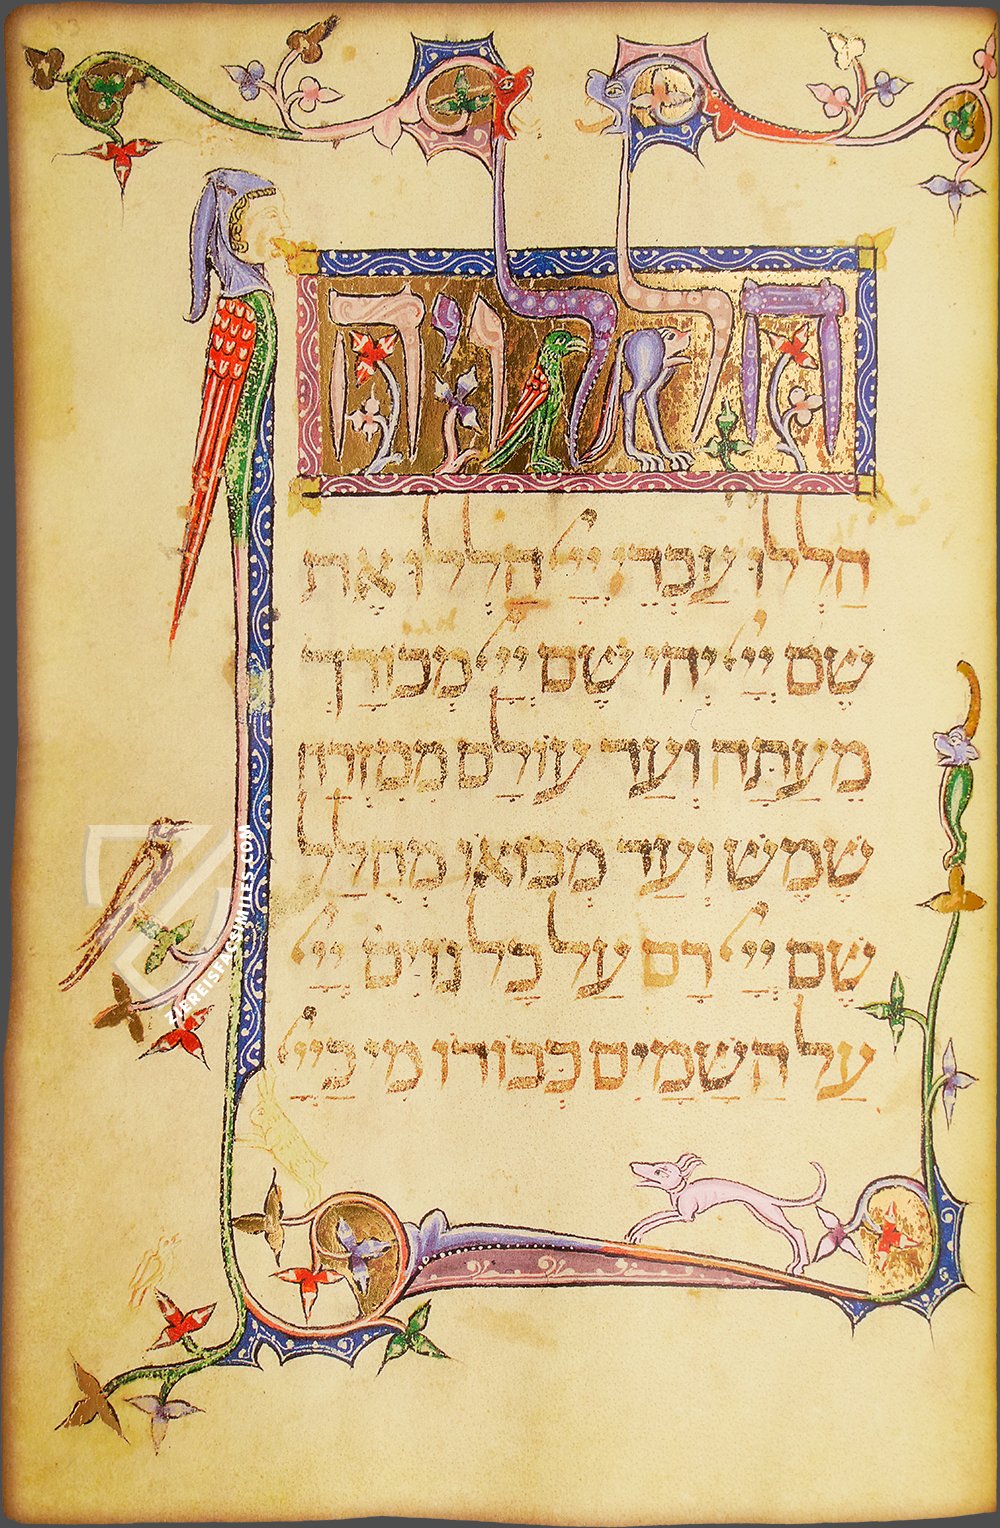 הללויה
הַלְלוּ עַבְדֵי יְיָ הַלְלוּ אֶת
שֵׁם יְיָ יְהִי שֵׁם יְיָ מְבוֹרָךְ
מֵעַתָּה וְעַד עוֹלָם מִמִּזְרַח
שֶׁמֶשׁ וְעַד מְבוֹאוֹ מְהֻלָּל
שֵׁם יְיָ רָם עַל כָּל גּוֹיִם יְיָ
עַל הַשָּׁמַיִם כְּבוֹדוֹ מִי כַּיְיָ
ZIEREISFACSIMILES.COM